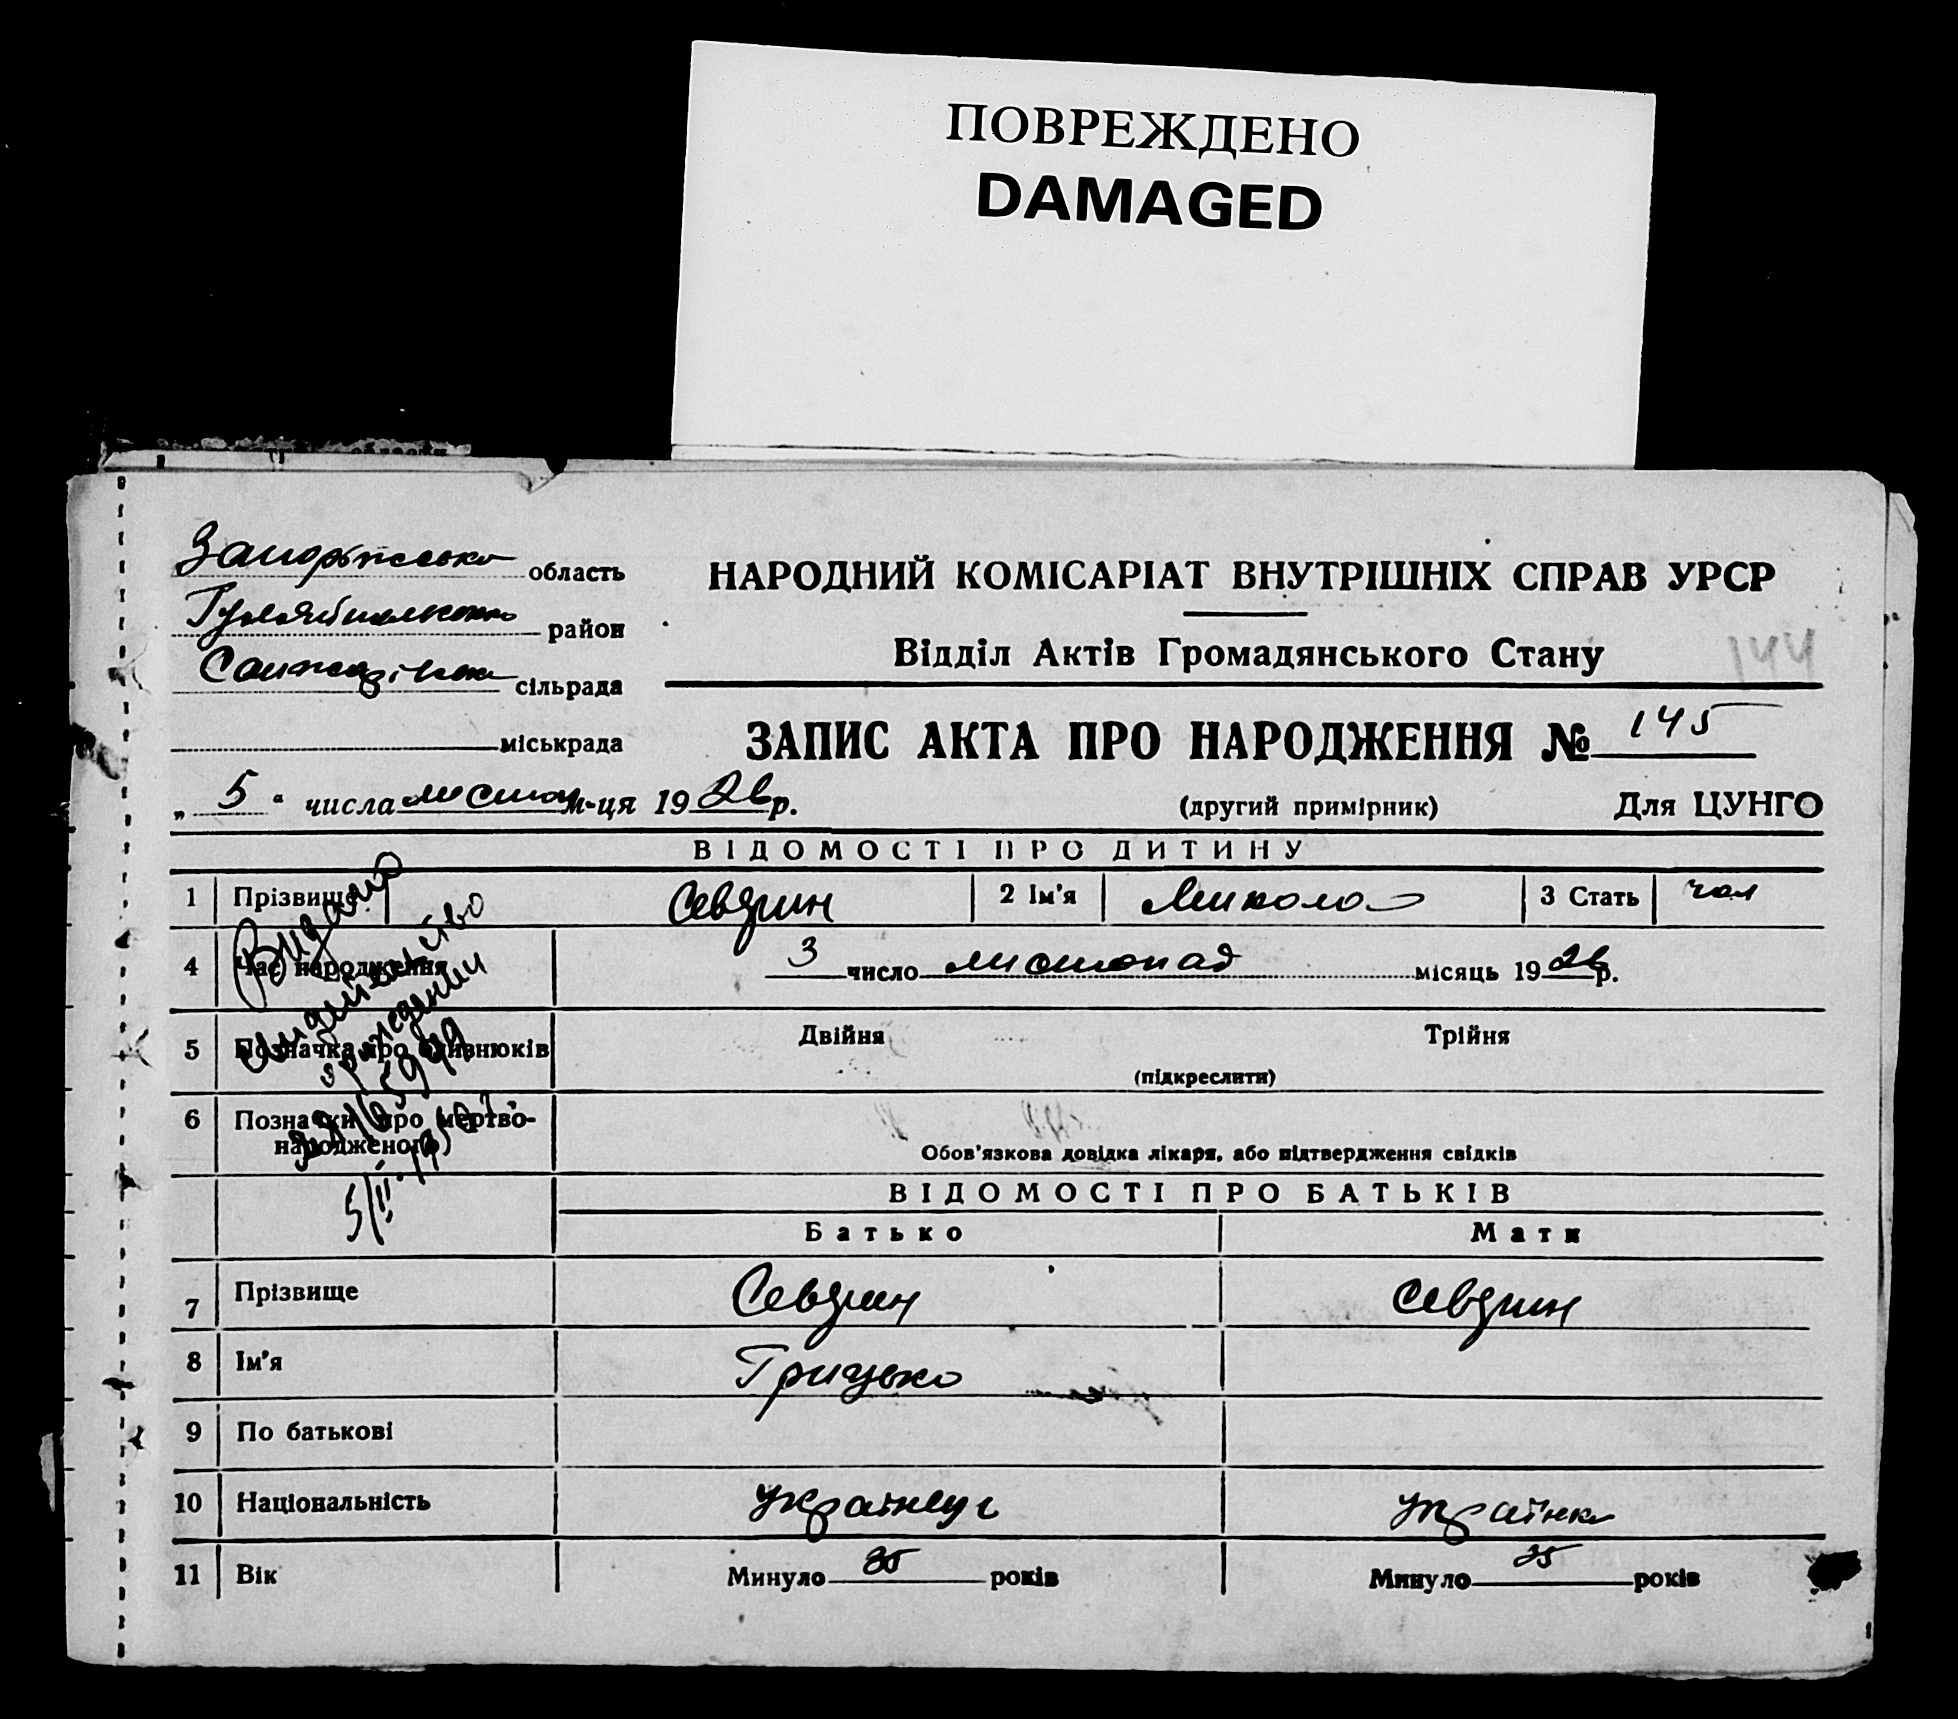 ПОВРЕЖДЕНО
DAMAGED
область
район
сільрада
міськрада
НАРОДНИЙ КОМІСАРІАТ ВНУТРІШНІХ СПРАВ УРСР
Відділ Актів Громадянського Стану
144
ЗАПИС АКТА ПРО НАРОДЖЕННЯ № 145
„ 5 “ числа м-ця 19 26 р.
(другий примірник) Для ЦУНГО
ВІДОМОСТІ ПРО ДИТИНУ
1 Прізвище 2 Ім'я Микола 3 Стать чол
4 Час народження 3 число листопад місяць 19 26 р.
5 Позначка про близнюків Двійня Трійня
(підкреслити)
6 Позначки про мертво-
народженого
Обов'язкова довідка лікаря, або підтвердження свідків
Видано
ВІДОМОСТІ ПРО БАТЬКІВ
Батько Мати
7 Прізвище
8 Ім'я Грицько
9 По батькові
10 Національність українець українка
11 Вік Минуло 35 років Минуло 35 років